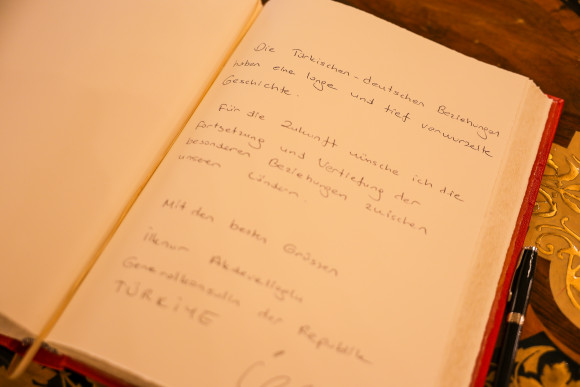 Die Türkischen-deutschen Beziehungen
haben eine lange und tief verwurzelte
Geschichte.
Für die Zukunft wünsche ich die
Fortsetzung und Vertiefung der
besonderen Beziehungen zwischen
unseren Ländern.
Mit den besten Grüssen
ilknur Akdevelioglu
Generalkonsulin der Republik
TÜRKİYE